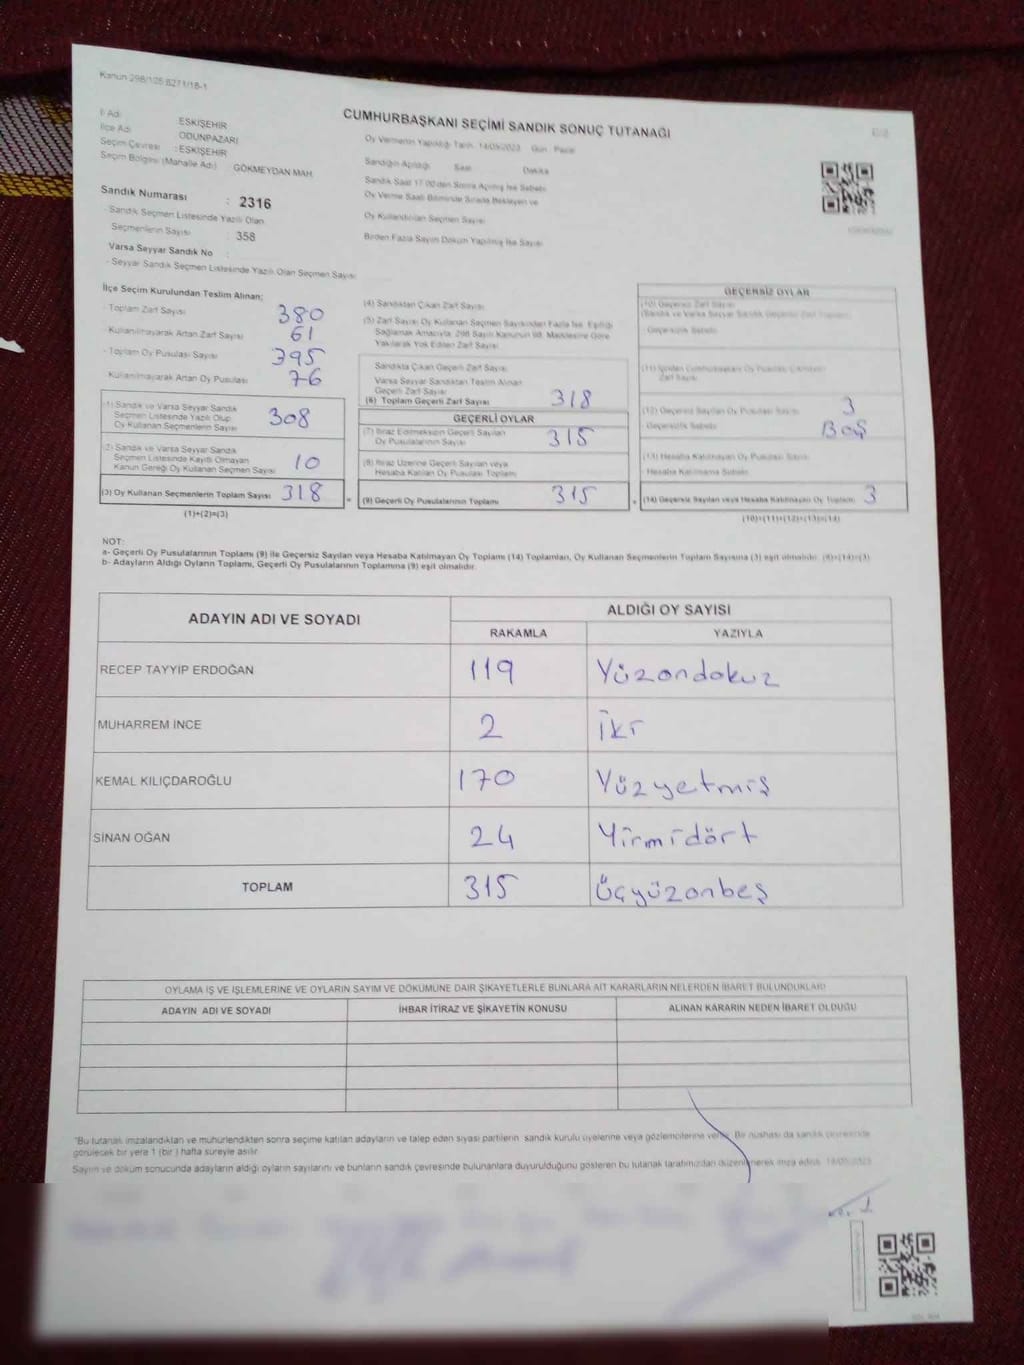 Kanun 298/105 6271/18-1
CUMHURBAŞKANI SEÇİMİ SANDIK SONUÇ TUTANAĞI
İl Adı : ESKİŞEHİR
İlçe Adı : ODUNPAZARI
Seçim Çevresi : ESKİŞEHİR
Seçim Bölgesi (Mahalle Adı) : GÖKMEYDAN MAH.
Sandık Numarası : 2316
- Sandık Seçmen Listesinde Yazılı Olan
Seçmenlerin Sayısı : 358
Varsa Seyyar Sandık No :
- Seyyar Sandık Seçmen Listesinde Yazılı Olan Seçmen Sayısı
Oy Vermenin Yapıldığı Tarih: 14/05/2023 Gün: Pazar
Sandığın Açıldığı Saat Dakika
Sandık Saat 17:00'den Sonra Açılmış İse Sebebi
Oy Verme Saati Bitiminde Sırada Bekleyen ve
Oy Kullandırılan Seçmen Sayısı
Birden Fazla Sayım Döküm Yapılmış İse Sayısı
İlçe Seçim Kurulundan Teslim Alınan;
- Toplam Zarf Sayısı 380
- Kullanılmayarak Artan Zarf Sayısı 61
- Toplam Oy Pusulası Sayısı 395
- Kullanılmayarak Artan Oy Pusulası 76
(1) Sandık ve Varsa Seyyar Sandık
Seçmen Listesinde Yazılı Olup
Oy Kullanan Seçmenlerin Sayısı 308
(2) Sandık ve Varsa Seyyar Sandık
Seçmen Listesinde Kayıtlı Olmayan
Kanun Gereği Oy Kullanan Seçmen Sayısı 10
(3) Oy Kullanan Seçmenlerin Toplam Sayısı 318
(1)+(2)=(3)
(4) Sandıktan Çıkan Zarf Sayısı
(5) Zarf Sayısı Oy Kullanan Seçmen Sayısından Fazla İse, Eşitliği
Sağlamak Amacıyla, 298 Sayılı Kanunun 98. Maddesine Göre
Yakılarak Yok Edilen Zarf Sayısı
Sandıkta Çıkan Geçerli Zarf Sayısı
Varsa Seyyar Sandıktan Teslim Alınan
Geçerli Zarf Sayısı
(6) Toplam Geçerli Zarf Sayısı 318
GEÇERLİ OYLAR
(7) İtiraz Edilmeksizin Geçerli Sayılan
Oy Pusulalarının Sayısı 315
(8) İtiraz Üzerine Geçerli Sayılan veya
Hesaba Katılan Oy Pusulası Toplamı
(9) Geçerli Oy Pusulalarının Toplamı 315
GEÇERSİZ OYLAR
(10) Geçersiz Zarf Sayısı
- Geçersizlik Sebebi
Zarf Sayısı
(12) Geçersiz Sayılan Oy Pusulası Sayısı 3
- Geçersizlik Sebebi BOŞ
(13) Hesaba Katılmayan Oy Pusulası Sayısı
- Hesaba Katılmama Sebebi
(14) Geçersiz Sayılan veya Hesaba Katılmayan Oy Toplamı 3
(10)+(11)+(12)+(13)=(14)
NOT:
a- Geçerli Oy Pusulalarının Toplamı (9) ile Geçersiz Sayılan veya Hesaba Katılmayan Oy Toplamı (14) Toplamları, Oy Kullanan Seçmenlerin Toplam Sayısına (3) eşit olmalıdır. (9)+(14)=(3)
b- Adayların Aldığı Oyların Toplamı, Geçerli Oy Pusulalarının Toplamına (9) eşit olmalıdır.
ADAYIN ADI VE SOYADI ALDIĞI OY SAYISI
RAKAMLA YAZIYLA
RECEP TAYYİP ERDOĞAN 119 Yüzondokuz
MUHARREM İNCE 2 İki
KEMAL KILIÇDAROĞLU 170 Yüzyetmiş
SİNAN OĞAN 24 Yirmidört
TOPLAM 315 Üçyüzonbeş
OYLAMA İŞ VE İŞLEMLERİNE VE OYLARIN SAYIM VE DÖKÜMÜNE DAİR ŞİKAYETLERLE BUNLARA AİT KARARLARIN NELERDEN İBARET BULUNDUKLARI
ADAYIN ADI VE SOYADI İHBAR İTİRAZ VE ŞİKAYETİN KONUSU ALINAN KARARIN NEDEN İBARET OLDUĞU
"Bu tutanak imzalandıktan ve mühürlendikten sonra seçime katılan adayların ve talep eden siyasi partilerin sandık kurulu üyelerine veya gözlemcilerine verilir. Bir nüshası da sandık çevresinde
görülecek bir yere 1 (bir) hafta süreyle asılır.
Sayım ve döküm sonucunda adayların aldığı oyların sayılarını ve bunların sandık çevresinde bulunanlara duyurulduğunu gösteren bu tutanak tarafımızdan düzenlenerek imza edildi. 14/05/2023